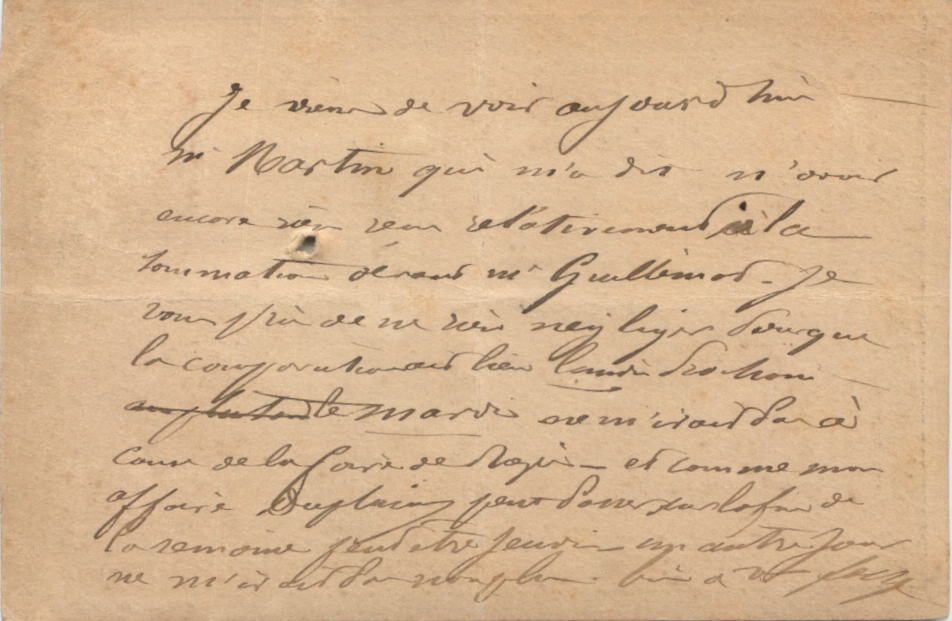 Je viens de voir aujourd'hui
Mr Martin qui m'a dit n'avoir
encore rien reçu relativement à la
sommation devant Mr Guillemot. Je
vous prie de ne rien négliger pour que
la comparution ait lieu lundi prochain
le mardi ne m'irait pas à
cause de la foire de et comme mon
affaire peut passer sur la fin de
la semaine peut être jeudi un autre jour
ne m'irait pas non plus. bien à vs